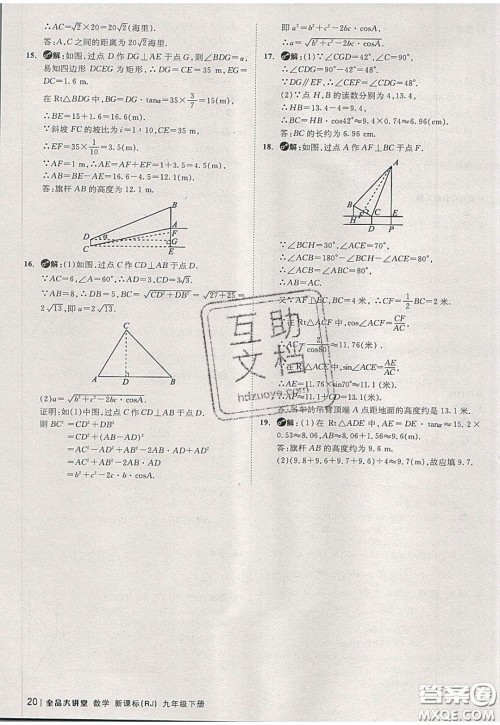 ∴AC=√2×20=20√2(海里).
答:A,C之间的距离为20√2海里.
15. 解:如图,过点D作DG⊥AE于点G,则∠BDG=α,
易知四边形DCEG为矩形.∴DG=CE=35 m,EG=
在Rt△BDG中,BG=DG·tanα=35×3/7=15(m).
∴BE=15+1.6=16.6(m).
∵斜坡FC的坡比为i=1∶10,CE=35 m,
∴EF=35×1/10=3.5(m).
∵AF=1,∴AE=3.5+1=4.5(m).
∴AB=BE-AE=16.6-4.5=12.1(m).
答:旗杆AB的高度为12.1 m.
B
A
F
D
α
G
C
E
16. 解:(1)如图,过点C作CD⊥AB于点D.
∵AC=6,∠A=60°,∴AD=3,CD=3√3.
∵AB=8,∴DB=5.∴BC=√(CD²+DB²)=√(27+25)=
2√13,即a=2√13.
C
A
D
B
(2)a=√(b²+c²-2bc·cosA).
证明:如(1)图,过点C作CD⊥AB于点D.
则BC²=CD²+DB²
=CD²+(AB-AD)²
=CD²+AD²+AB²-2AB·AD
=AC²+AB²-2AB·AC·cosA
=b²+c²-2c·b·cosA.
即a²=b²+c²-2bc·cosA.
∴a=√(b²+c²-2bc·cosA).
17. 解:(1)∵∠CGD=42°,∠C=90°,
∴∠CDG=90°-42°=48°.
∵DG∥EF,∴∠CEF=∠CDG=48°.
(2)∵点H,B的读数分别为4,13.4,
∴HB=13.4-4=9.4.
∴BC=HB·cos42°≈9.4×0.74≈6.96(cm).
答:BC的长约为6.96 cm.
18. 解:如图,过点A作AF⊥BC于点F.
A
B
F
C
H
E
D
P
∵∠BCH=30°,∠ACE=70°,
∴∠ACB=180°-∠BCH-∠ACE=80°.
又∵AB=AC,AF⊥BC,∴CF=1/2BC=2米.
∴在Rt△ACF中,cos∠ACF=CF/AC.
∴AC=2/cos80°≈11.76(米).
又∵在Rt△ACE中,sin∠ACE=AE/AC,
∴AE=11.76×sin70°≈11.1(米).
∴AP=AE+EP≈13.1(米).
答:吊车的吊臂顶端A点距地面的高度约是13.1米.
19. 解:(1)在Rt△ADE中,AE=DE·tan∠ADE≈15.2×
0.53≈8.06,AB=AE+BE≈8.06+1.5≈9.6(m).
答:旗杆AB的高度约是9.6 m.
(2)(9.8+9.6+9.8+9.6+9.7)÷5=9.7,故应填9.7.
互助文档
hdzuoye.com
20 | 全品大讲堂 数学 新课标(RJ) 九年级下册
答案圈
MXQE.COM